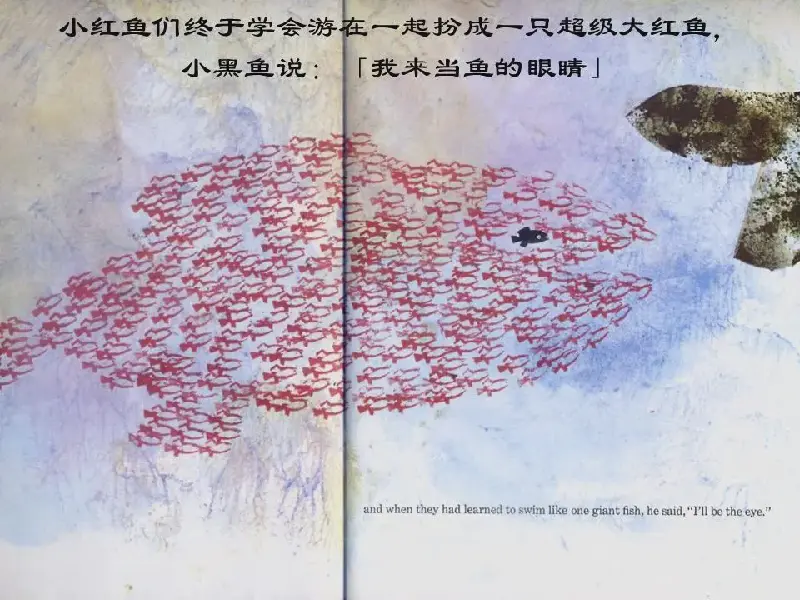 小红鱼们终于学会游在一起扮成一只超级大红鱼，
小黑鱼说：「我来当鱼的眼睛」
and when they had learned to swim like one giant fish, he said, "I'll be the eye."